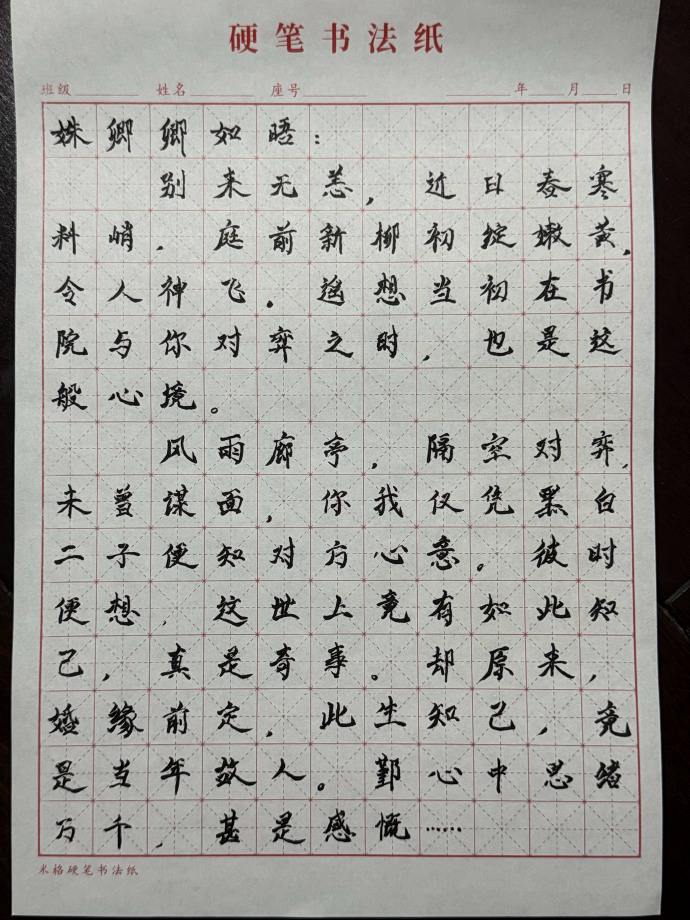 硬笔书法纸
班级 姓名 座号 年 月 日
姝卿卿如晤：
别来无恙，近日春寒
料峭，庭前新柳初绽嫩黄，
令人神飞。遥想当初在书
院与你对弈之时，也是这
般心境。
风雨廊亭，隔空对弈，
未曾谋面，你我仅凭黑白
二子便知对方心意。彼时
便想，这世上竟有如此知
己，真是奇事。却原来，
婚缘前定，此生知己，竟
是当年故人。鄞心中思绪
万千，甚是感慨……
米格硬笔书法纸